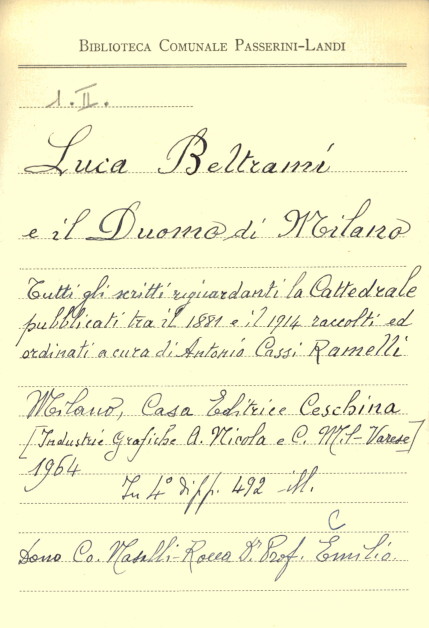 BIBLIOTECA COMUNALE PASSERINI-LANDI
1.II.
Luca Beltrami
e il Duomo di Milano
Tutti gli scritti riguardanti la Cattedrale
pubblicati tra il 1881 e il 1914 raccolti ed
ordinati a cura di Antonio Cassi Ramelli
Milano, Casa Editrice Ceschina
[Industrie Grafiche A. Nicola e C. Mil-Varese]
1964
In 4° di pp. 492 ill.
C
Dono Co. Naselli-Rocca Dr Prof. Emilio.